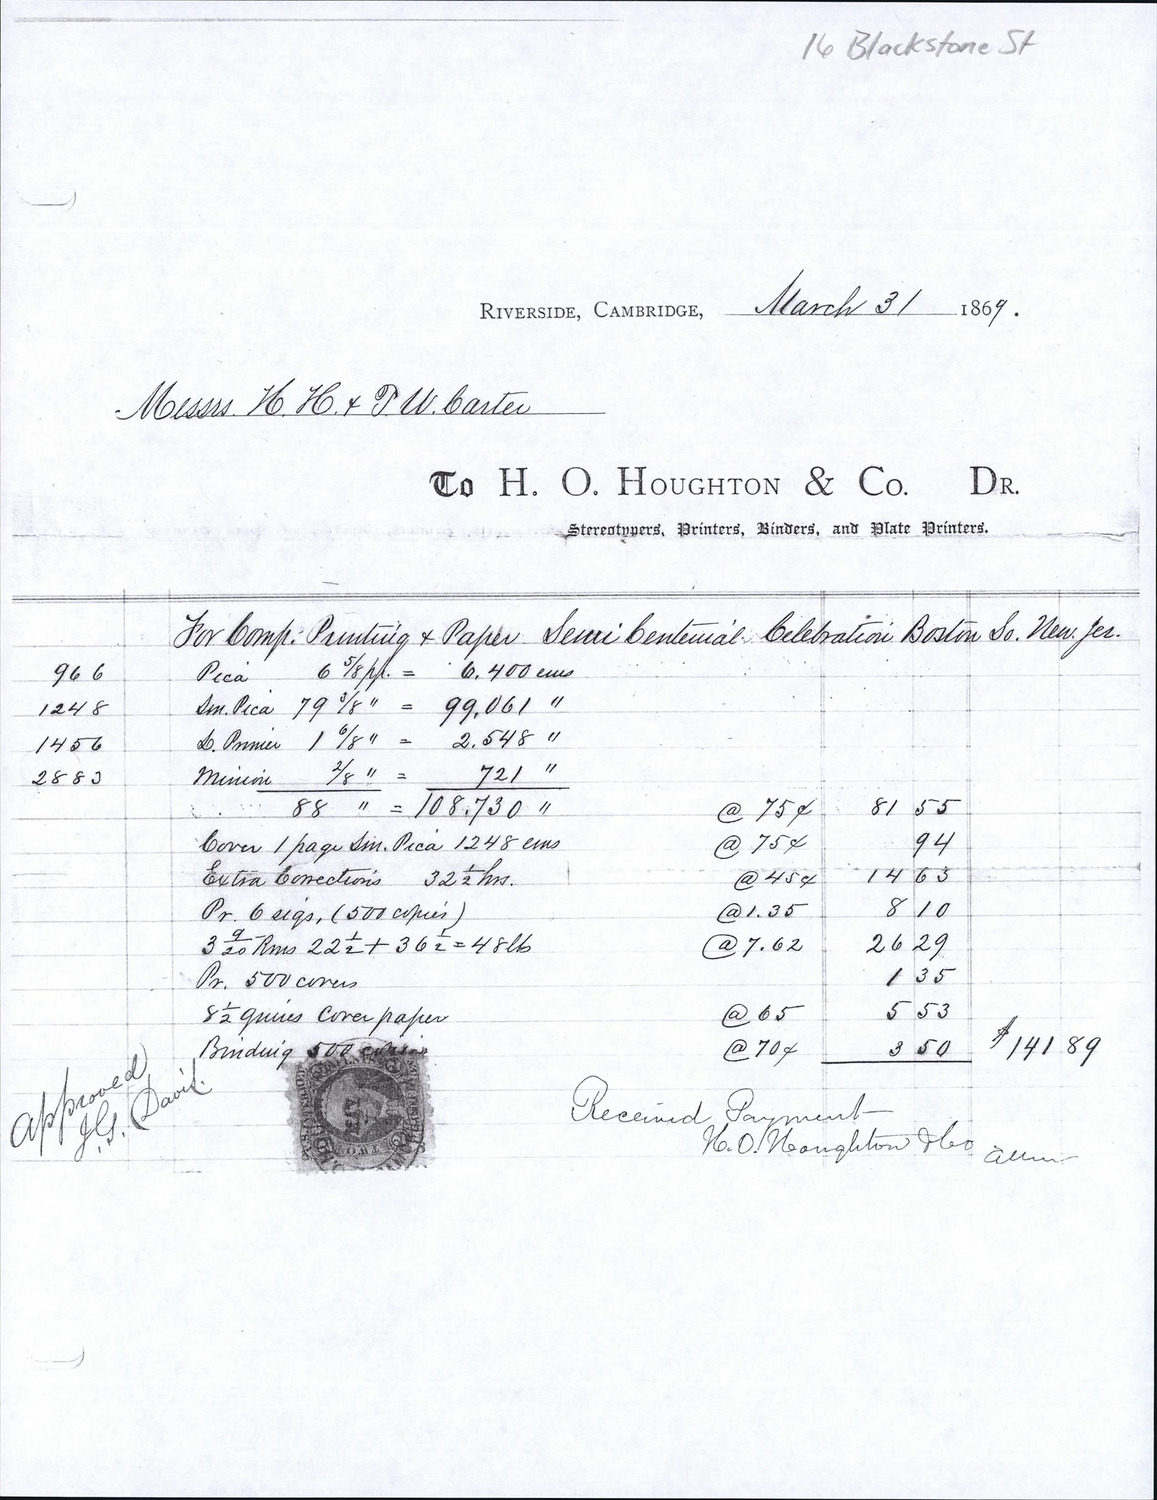 16 Blackstone St
Riverside, Cambridge, March 31 1869.
Messrs. H. H. & T. W. Carter
To H. O. Houghton & Co. Dr.
Stereotypers, Printers, Binders, and Plate Printers.
For Comp: Printing & Paper Semi Centenial Celebration Boston So. New. Jer.
966 Pica 6 5/8 pp. = 6,400 ems
1248 Sm. Pica 79 3/8 " = 99,061 "
1456 L. Primer 1 6/8 " = 2.548 "
2883 Minion 2/8 " = 721 "
88 " = 108.730 " @ 75¢ 81 55
Cover 1 page Sm. Pica 1248 ems @ 75¢ 94
Extra Corrections 32 1/2 hrs. @ 45¢ 14 63
Pr. 6 sigs, (500 copies) @ 1.35 8 10
3 9/20 Rms 22 1/2 + 36 1/2 = 48 lb @ 7.62 26 29
Pr. 500 covers 1 35
8 1/2 quires Cover paper @ 65 5 53
Binding 500 copies @ 70¢ 3 50 $141 89
Approved
J. G. Davis.
Received Payment
H. O. Houghton & Co